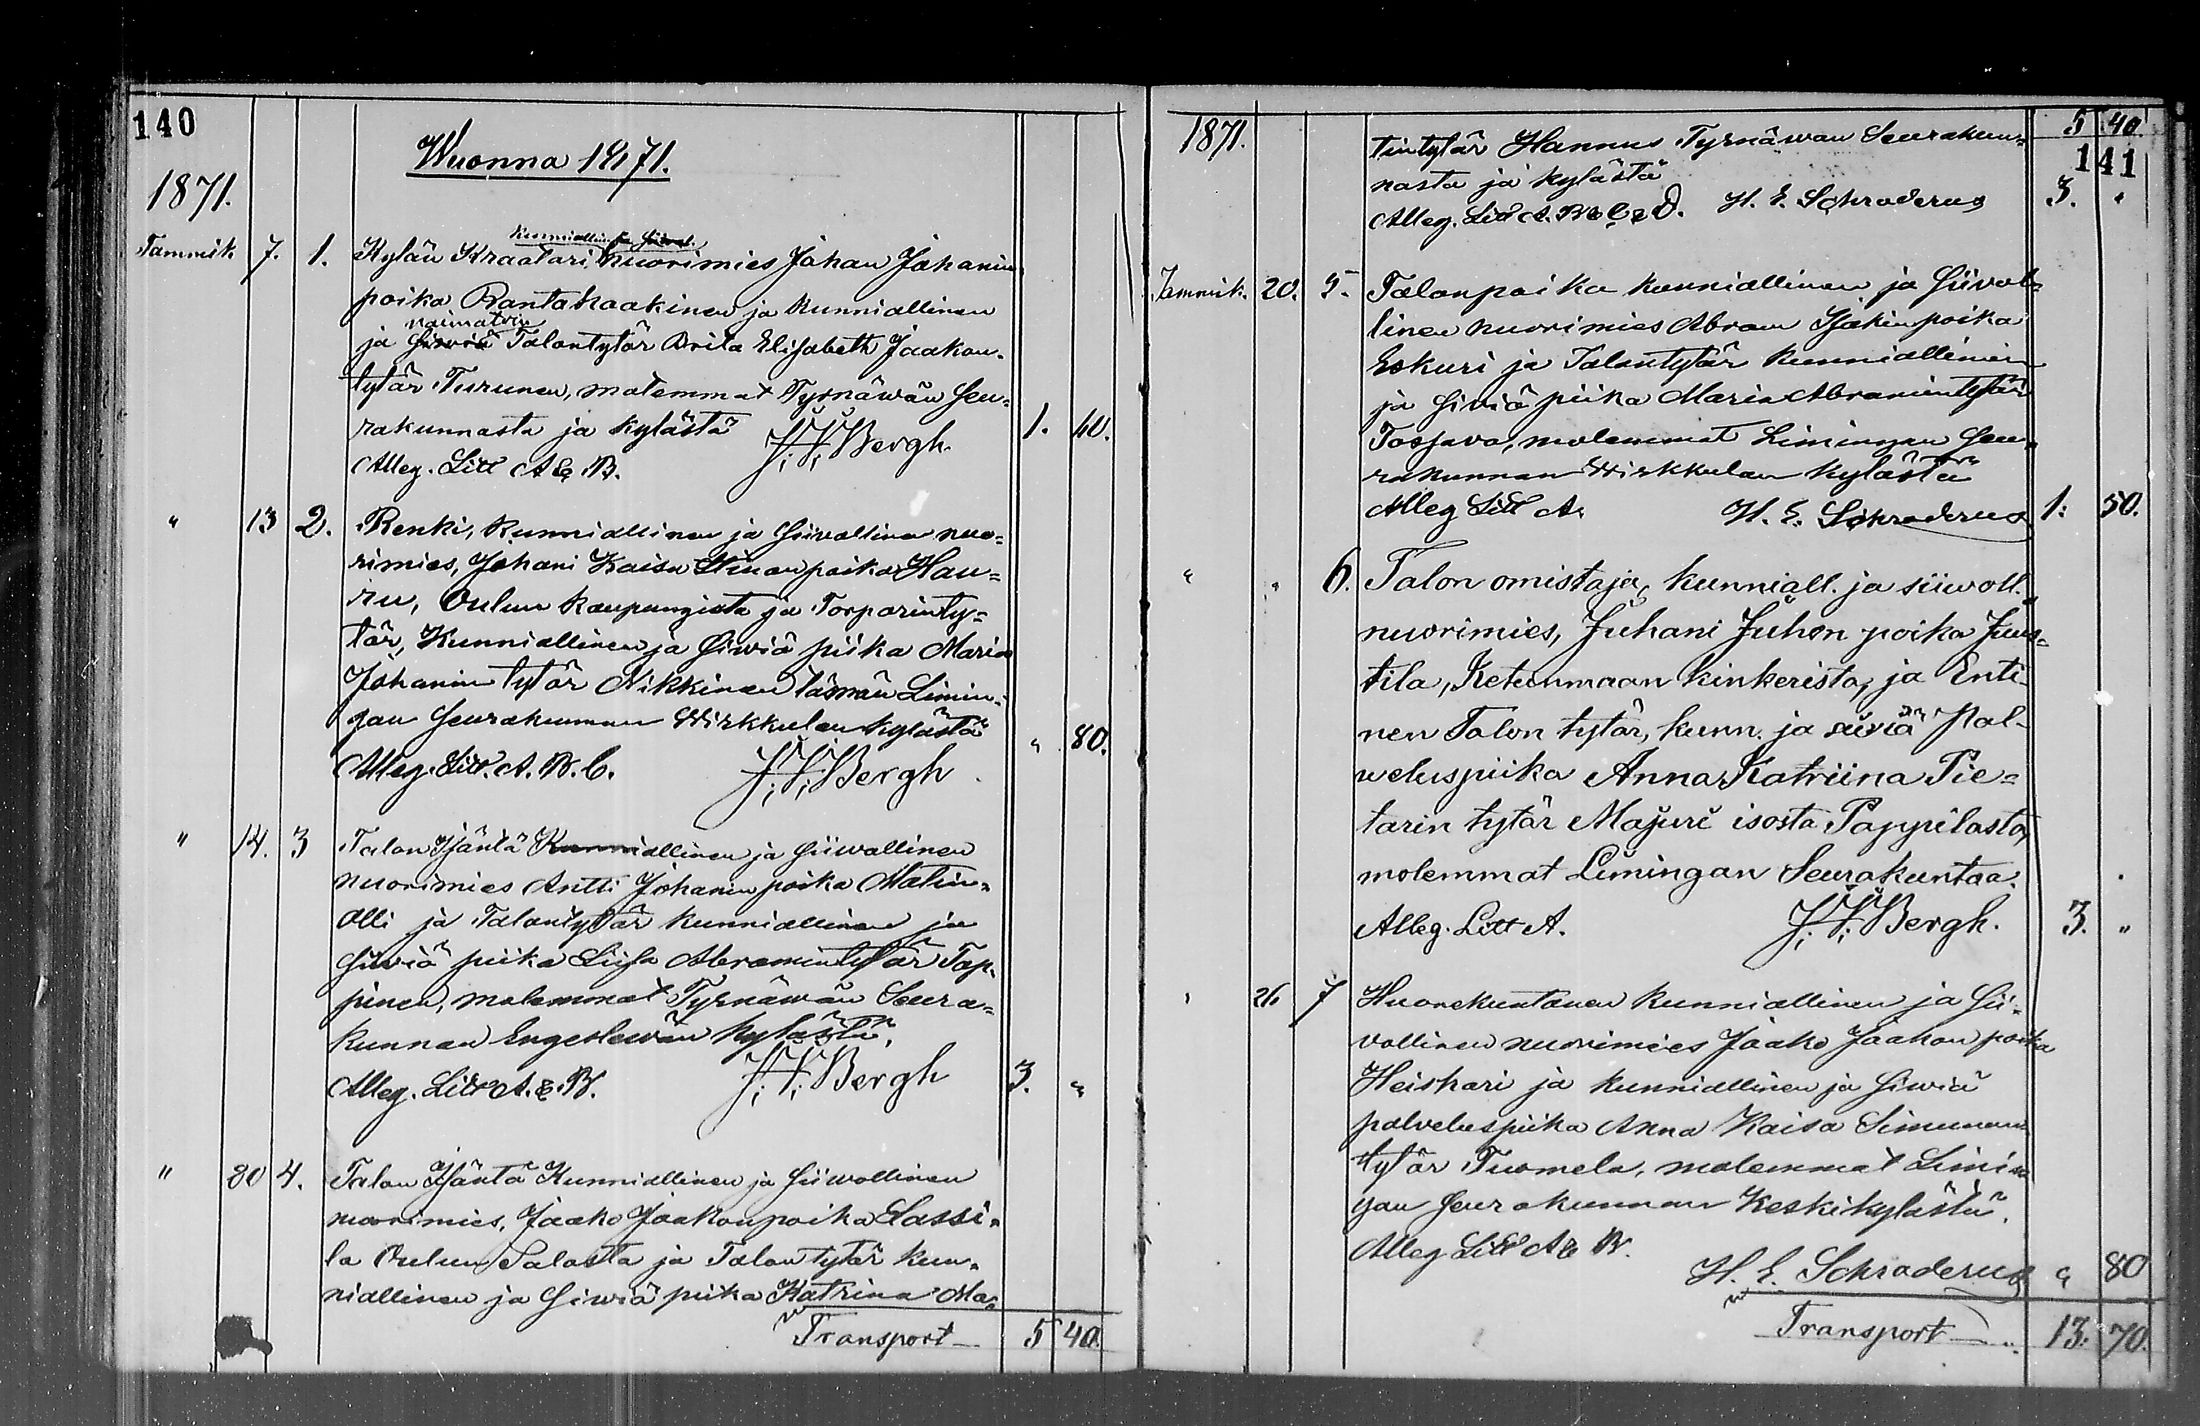 140
Wuonna 1871.
1871.
Tammik. 7. 1. Kylän Kraatari, kunniallin. ja siivol. nuorimies Johan Johanin
poika Rantakaakinen ja kunniallinen
ja naimatoin Talontytär Brita Elisabeth Jaakon-
tytär Turunen, molemmat Tyrnäwän Seu-
rakunnasta ja kylästä 1. 40.
Alleg. Litt A & B. J. V. Bergh.
" 13 2. Renki, kunniallinen ja siivollinen nuo-
rimies, Johani Kaisa Stiinan poika Hau-
ru, Oulun kaupungista ja Torparinty-
tär, Kunniallinen ja siwiä piika Maria
Johanin tytär Nikkinen täsmän Limin-
gan Seurakunnan Wirkkulan kylästä " 80.
Alleg. Litt. A. B. C. J. V. Bergh
" 14. 3 Talon Isäntä Kunniallinen ja siiwollinen
nuorimies Antti Johanin poika Matin-
olli ja Talontytär kunniallinen ja
siwiä piika Liisa Abramintytär Tap-
pinen, molemmat Tyrnäwän Seura-
kunnan Engeslewän kylästä.
Alleg. Litt A. & B. J. V. Bergh 3. "
" 20 4. Talon Isäntä Kunniallinen ja siiwollinen
nuorimies, Jaako Jaakonpoika Lassi-
la Oulun Salosta ja Talon tytär kun-
niallinen ja siwiä piika Katrina Mar-
Transport 5 40.
1871. 5 40.
141
tintytär Hannus Tyrnäwän Seurakun-
nasta ja kylästä
Alleg. Litt A. B & C & D. H. E. Schroderus 3. "
Tammik. 20. 5. Talonpoika kunniallinen ja siivol-
linen nuorimies Abram Isakin poika
Eskuri ja Talontytär kunniallinen
ja siviä piika Maria Abramintytär
Tosjava, molemmat Limingan Seu-
rakunnan Wirkkulan kylästä
Alleg Litt A. H. E. Schroderus 1. 50.
" " 6. Talon omistaja, kunniall. ja siiwoll.
nuorimies, Juhani Juhon poika Juus-
tila, Ketunmaan kinkerista, ja Enti-
nen Talon tytär, kunn. ja siiviä Pal-
weluspiika Anna Katriina Pie-
tarin tytär Majuri isosta Pappilasta,
molemmat Limingan Seurakuntaa.
Alleg. Litt A. J. V. Bergh. 3. "
" 26 7 Huonekuntanen kunniallinen ja sii-
vollinen nuorimies Jaako Jaakon poika
Heiskari ja kunniallinen ja siwiä
palveluspiika Anna Kaisa Simunan
tytär Tuomela, molemmat Limin-
gan Seurakunnan Keskikylästä.
Alleg Litt A & B.
H. E. Schroderus " 80
Transport 13. 70.